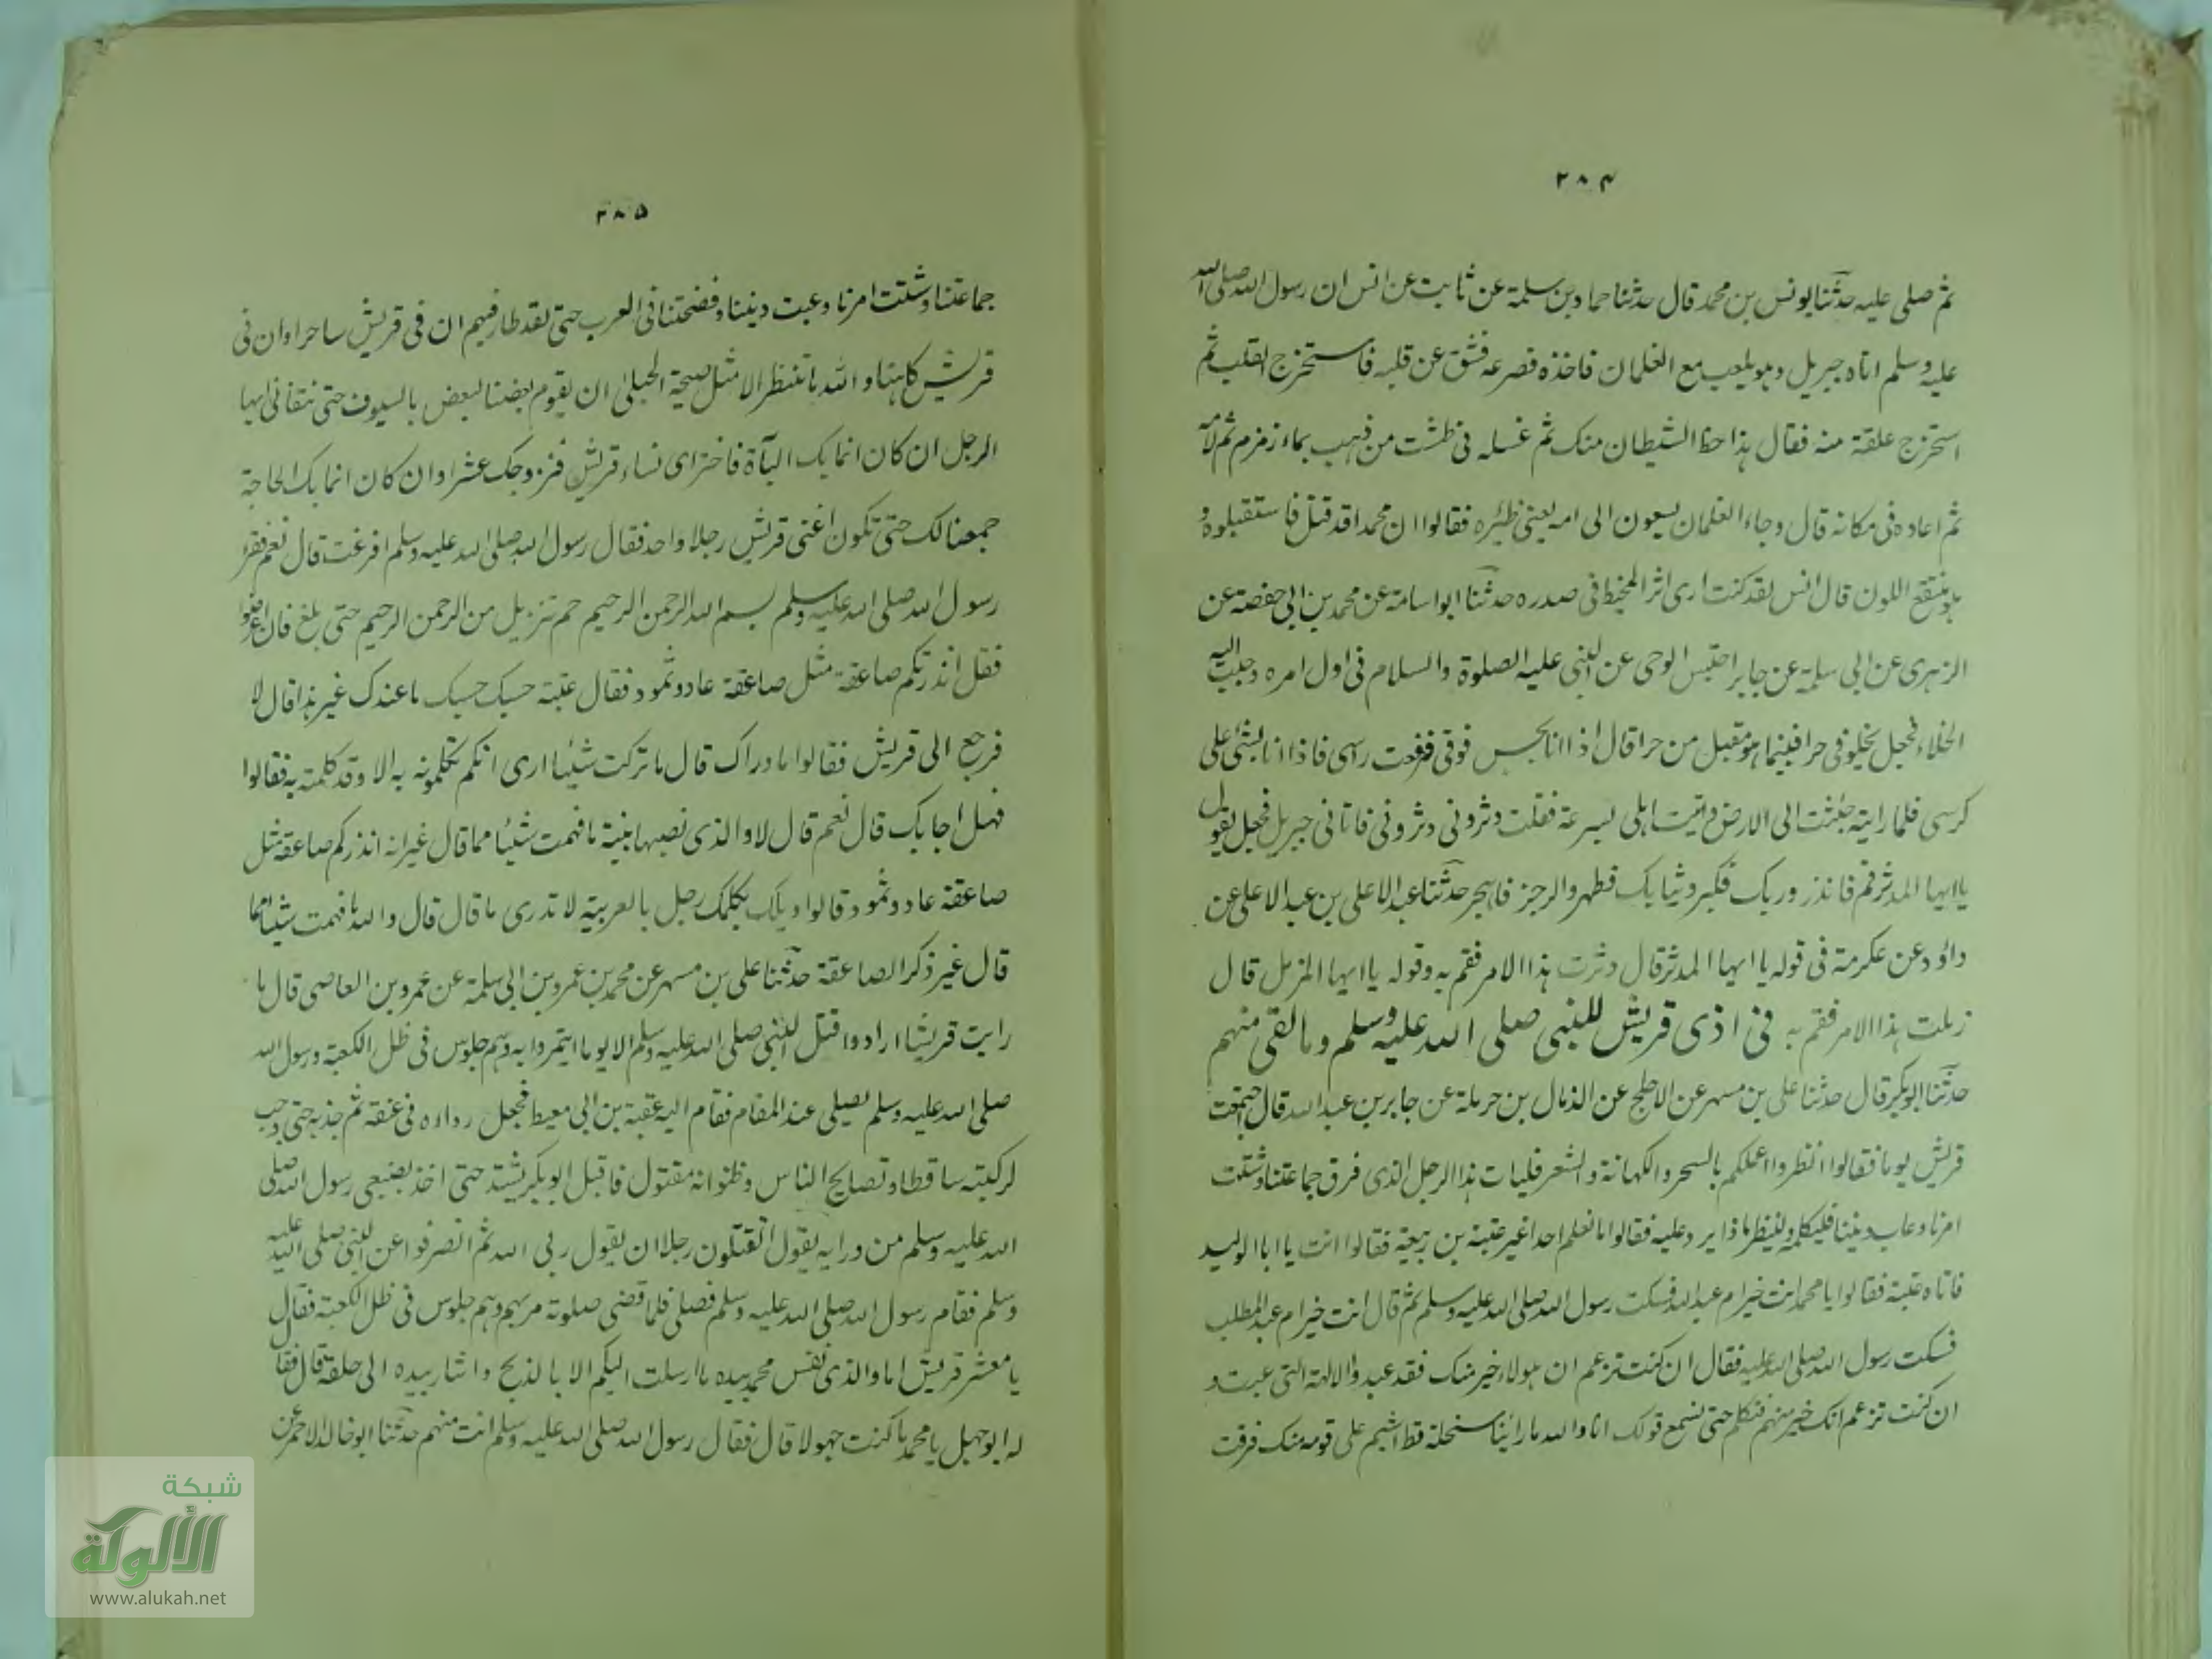 ۲۸۴
ثم صلى عليه حدثنا يونس بن محمد قال حدثنا حماد بن سلمة عن ثابت عن انس ان رسول الله صلى الله
عليه وسلم اتاه جبريل وهو يلعب مع الغلمان فاخذه فصرعه فشق عن قلبه فاستخرج القلب ثم
استخرج علقة منه فقال هذا حظ الشيطان منك ثم غسله فى طشت من ذهب بماء زمزم ثم لامه
ثم اعاده فى مكانه قال وجاء الغلمان يسعون الى امه يعنى ظئره فقالوا ان محمدا قد قتل فاستقبلوه و
هو منتقع اللون قال انس لقد كنت ارى اثر المخيط فى صدره حدثنا ابو اسامة عن محمد بن ابى حفصة عن
الزهرى عن ابى سلمة عن جابر احتبس الوحى عن النبى عليه الصلوة والسلام فى اول امره وحبب اليه
الخلاء فجعل يخلو فى حرا فبينما هو مقبل من حرا قال اذا انا بحس فوقى فرفعت راسى فاذا انا بشئ على
كرسى فلما رايته جئثت الى الارض واتيت اهلى بسرعة فقلت دثرونى دثرونى فاتانى جبريل فجعل يقول
يا ايها المدثر قم فانذر وربك فكبر وثيابك فطهر والرجز فاهجر حدثنا عبد الاعلى بن عبد الاعلى عن
داؤد عن عكرمة فى قوله يا ايها المدثر قال دثرت هذا الامر فقم به وقوله يا ايها المزمل قال
زملت هذا الامر فقم به فى اذى قريش للنبى صلى الله عليه وسلم وما لقى منهم
حدثنا ابو بكر قال حدثنا على بن مسهر عن الاجلح عن الذيال بن حرملة عن جابر بن عبد الله قال اجتمعت
قريش يوما فقالوا انظروا اعلمكم بالسحر والكهانة والشعر فليات هذا الرجل الذى فرق جماعتنا وشتت
امرنا وعاب ديننا فليكلمه ولينظر ماذا يرد عليه فقالوا ما نعلم احدا غير عتبة بن ربيعة فقالوا انت يا ابا الوليد
فاتاه عتبة فقالوا يا محمد انت خير ام عبد الله فسكت رسول الله صلى الله عليه وسلم ثم قال انت خير ام عبد المطلب
فسكت رسول الله صلى الله عليه فقال ان كنت تزعم ان هولاء خير منك فقد عبدوا الالهة التى عبت و
ان كنت تزعم انك خير منهم فتكلم حتى نسمع قولك انا والله ما راينا سخلة قط اشيم على قومه منك فرقت
۲۸۵
جماعتنا وشتت امرنا وعبت ديننا وفضحتنا فى العرب حتى لقد طار فيهم ان فى قريش ساحرا وان فى
قريش كاهنا والله ما ننتظر الا مثل صيحة الحبلى ان يقوم بعضنا لبعض بالسيوف حتى نتفانى ايها
الرجل ان كان انما بك الباٰة فاختر اى نساء قريش فنزوجك عشرا وان كان انما بك الحاجة
جمعنا لك حتى تكون اغنى قريش رجلا واحد فقال رسول الله صلى الله عليه وسلم افرغت قال نعم فقرا
رسول الله صلى الله عليه وسلم بسم الله الرحمن الرحيم حم تنزيل من الرحمن الرحيم حتى بلغ فان اعرضوا
فقل انذرتكم صاعقة مثل صاعقة عاد وثمود فقال عتبة حسبك حسبك ما عندك غير هذا قال لا
فرجع الى قريش فقالوا ما وراك قال ما تركت شيئا ارى انكم تكلمونه به الا وقد كلمته به فقالوا
فهل اجابك قال نعم قال لا والذى نصبها بنية ما فهمت شيئا مما قال غير انه انذركم صاعقة مثل
صاعقة عاد وثمود قالوا ويلك يكلمك رجل بالعربية لا تدرى ما قال قال والله ما فهمت شيئا مما
قال غير ذكر الصاعقة حدثنا على بن مسهر عن محمد بن عمرو بن ابى سلمة عن عمرو بن العاصى قال ما
رايت قريشا ارادوا قتل النبى صلى الله عليه وسلم الا يوما ايتمروا به وهم جلوس فى ظل الكعبة ورسول الله
صلى الله عليه وسلم يصلى عند المقام فقام اليه عقبة بن ابى معيط فجعل رداءه فى عنقه ثم جذبه حتى وجب
لركبته ساقطا وتصايح الناس وظنوا انه مقتول فاقبل ابو بكر يشتد حتى اخذ بضبعى رسول الله صلى
الله عليه وسلم من ورايه يقول اتقتلون رجلا ان يقول ربى الله ثم انصرفوا عن النبى صلى الله عليه
وسلم فقام رسول الله صلى الله عليه وسلم فصلى فلما قضى صلوته مر بهم وهم جلوس فى ظل الكعبة فقال
يا معشر قريش اما والذى نفس محمد بيده ما ارسلت اليكم الا بالذبح واشار بيده الى حلقه قال فقال
له ابو جهل يا محمد ما كنت جهولا قال فقال رسول الله صلى الله عليه وسلم انت منهم حدثنا ابو خالد الاحمر عن
شبكة
الألوكة
www.alukah.net